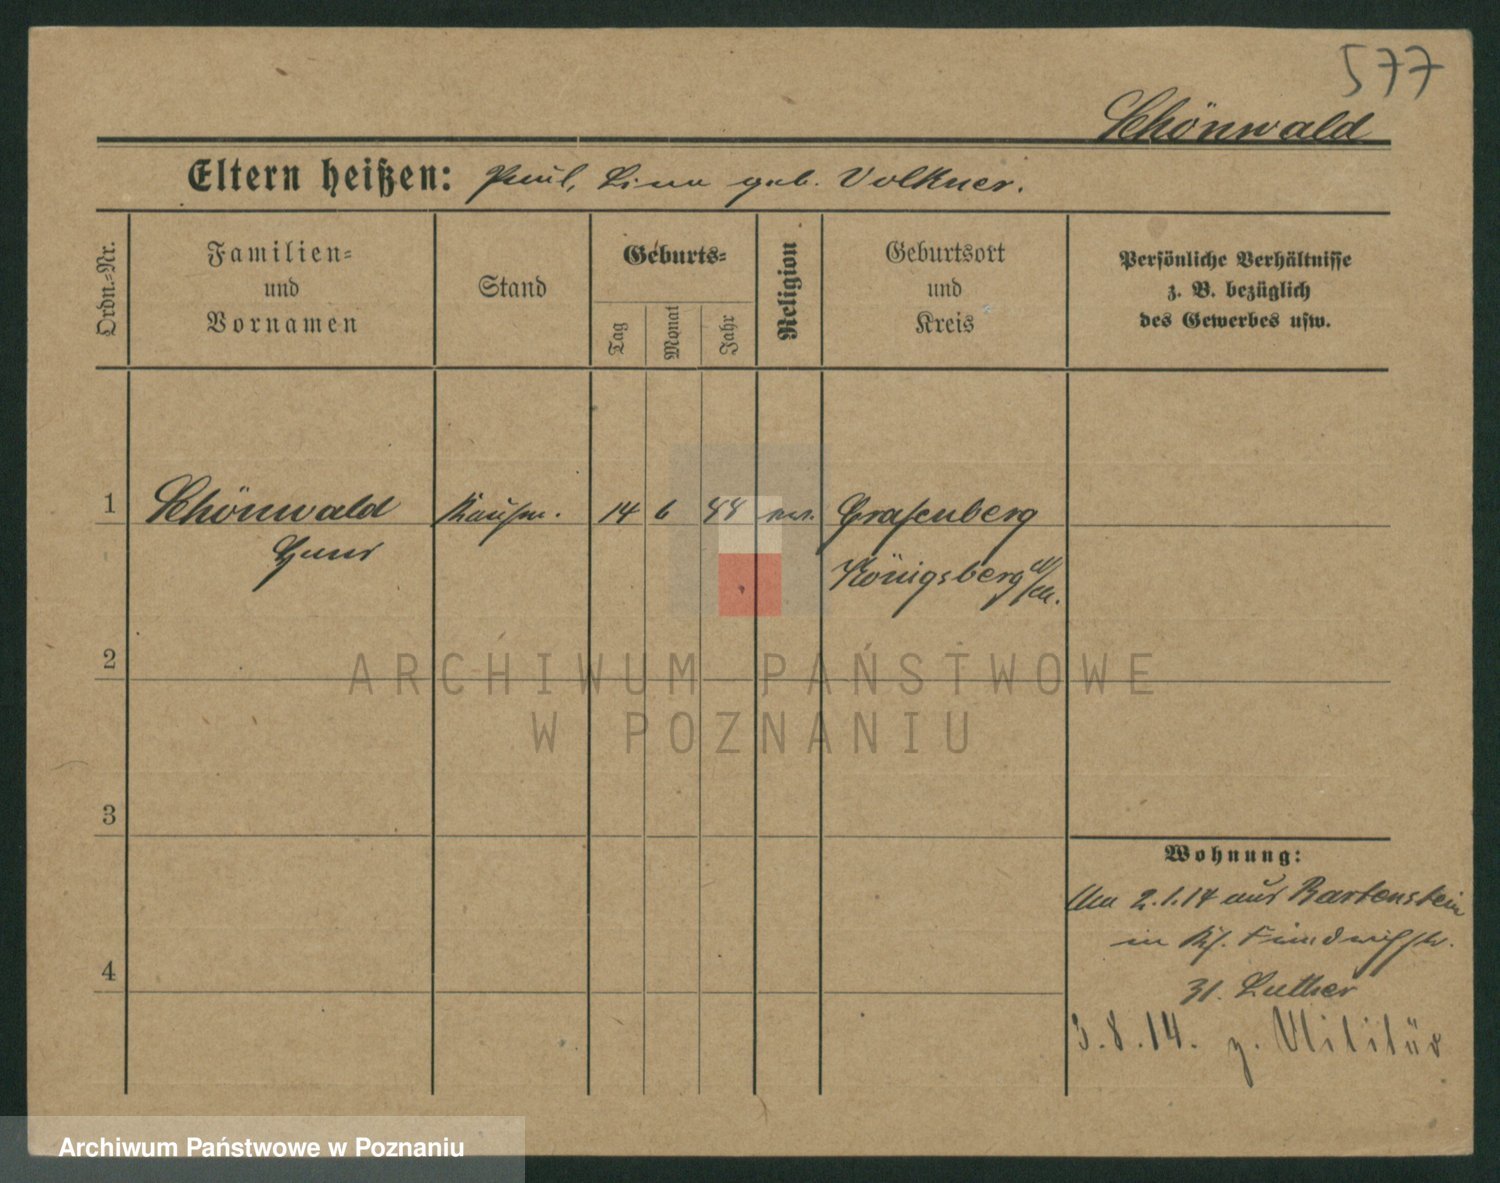 577
Schönwald
Eltern heißen: Paul, Lina geb. Volkner.
Ordn.-Nr.
Familien- und Vornamen
Stand
Geburts-
Tag
Monat
Jahr
Religion
Geburtsort und Kreis
Persönliche Verhältnisse
z. B. bezüglich
des Gewerbes usw.
1 Schönwald Kaufm. 14 6 88 Grasenberg
Hans Königsberg
2
ARCHIWUM PAŃSTWOWE
W POZNANIU
3
Wohnung:
2.1.14 aus Bartenstein
in
31. Luther
4
3.8.14. z. Militär
Archiwum Państwowe w Poznaniu